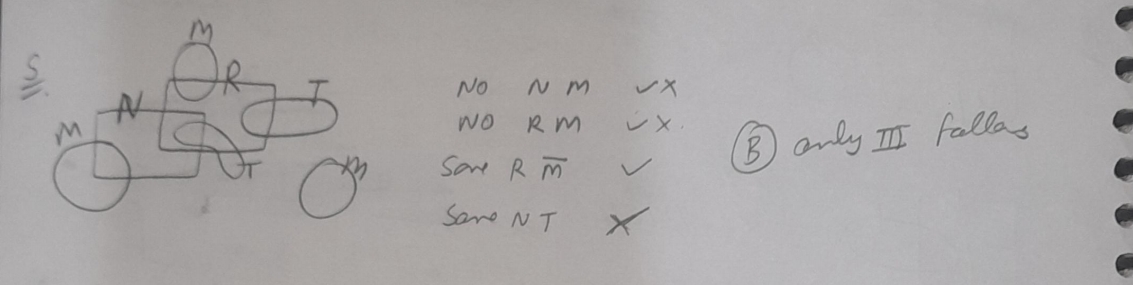 S.
M
R
T
N
M
T
M
NO N M ✓×
NO R M ✓×.
Some R M̅ ✓
Some N T ×
(B) only III follows